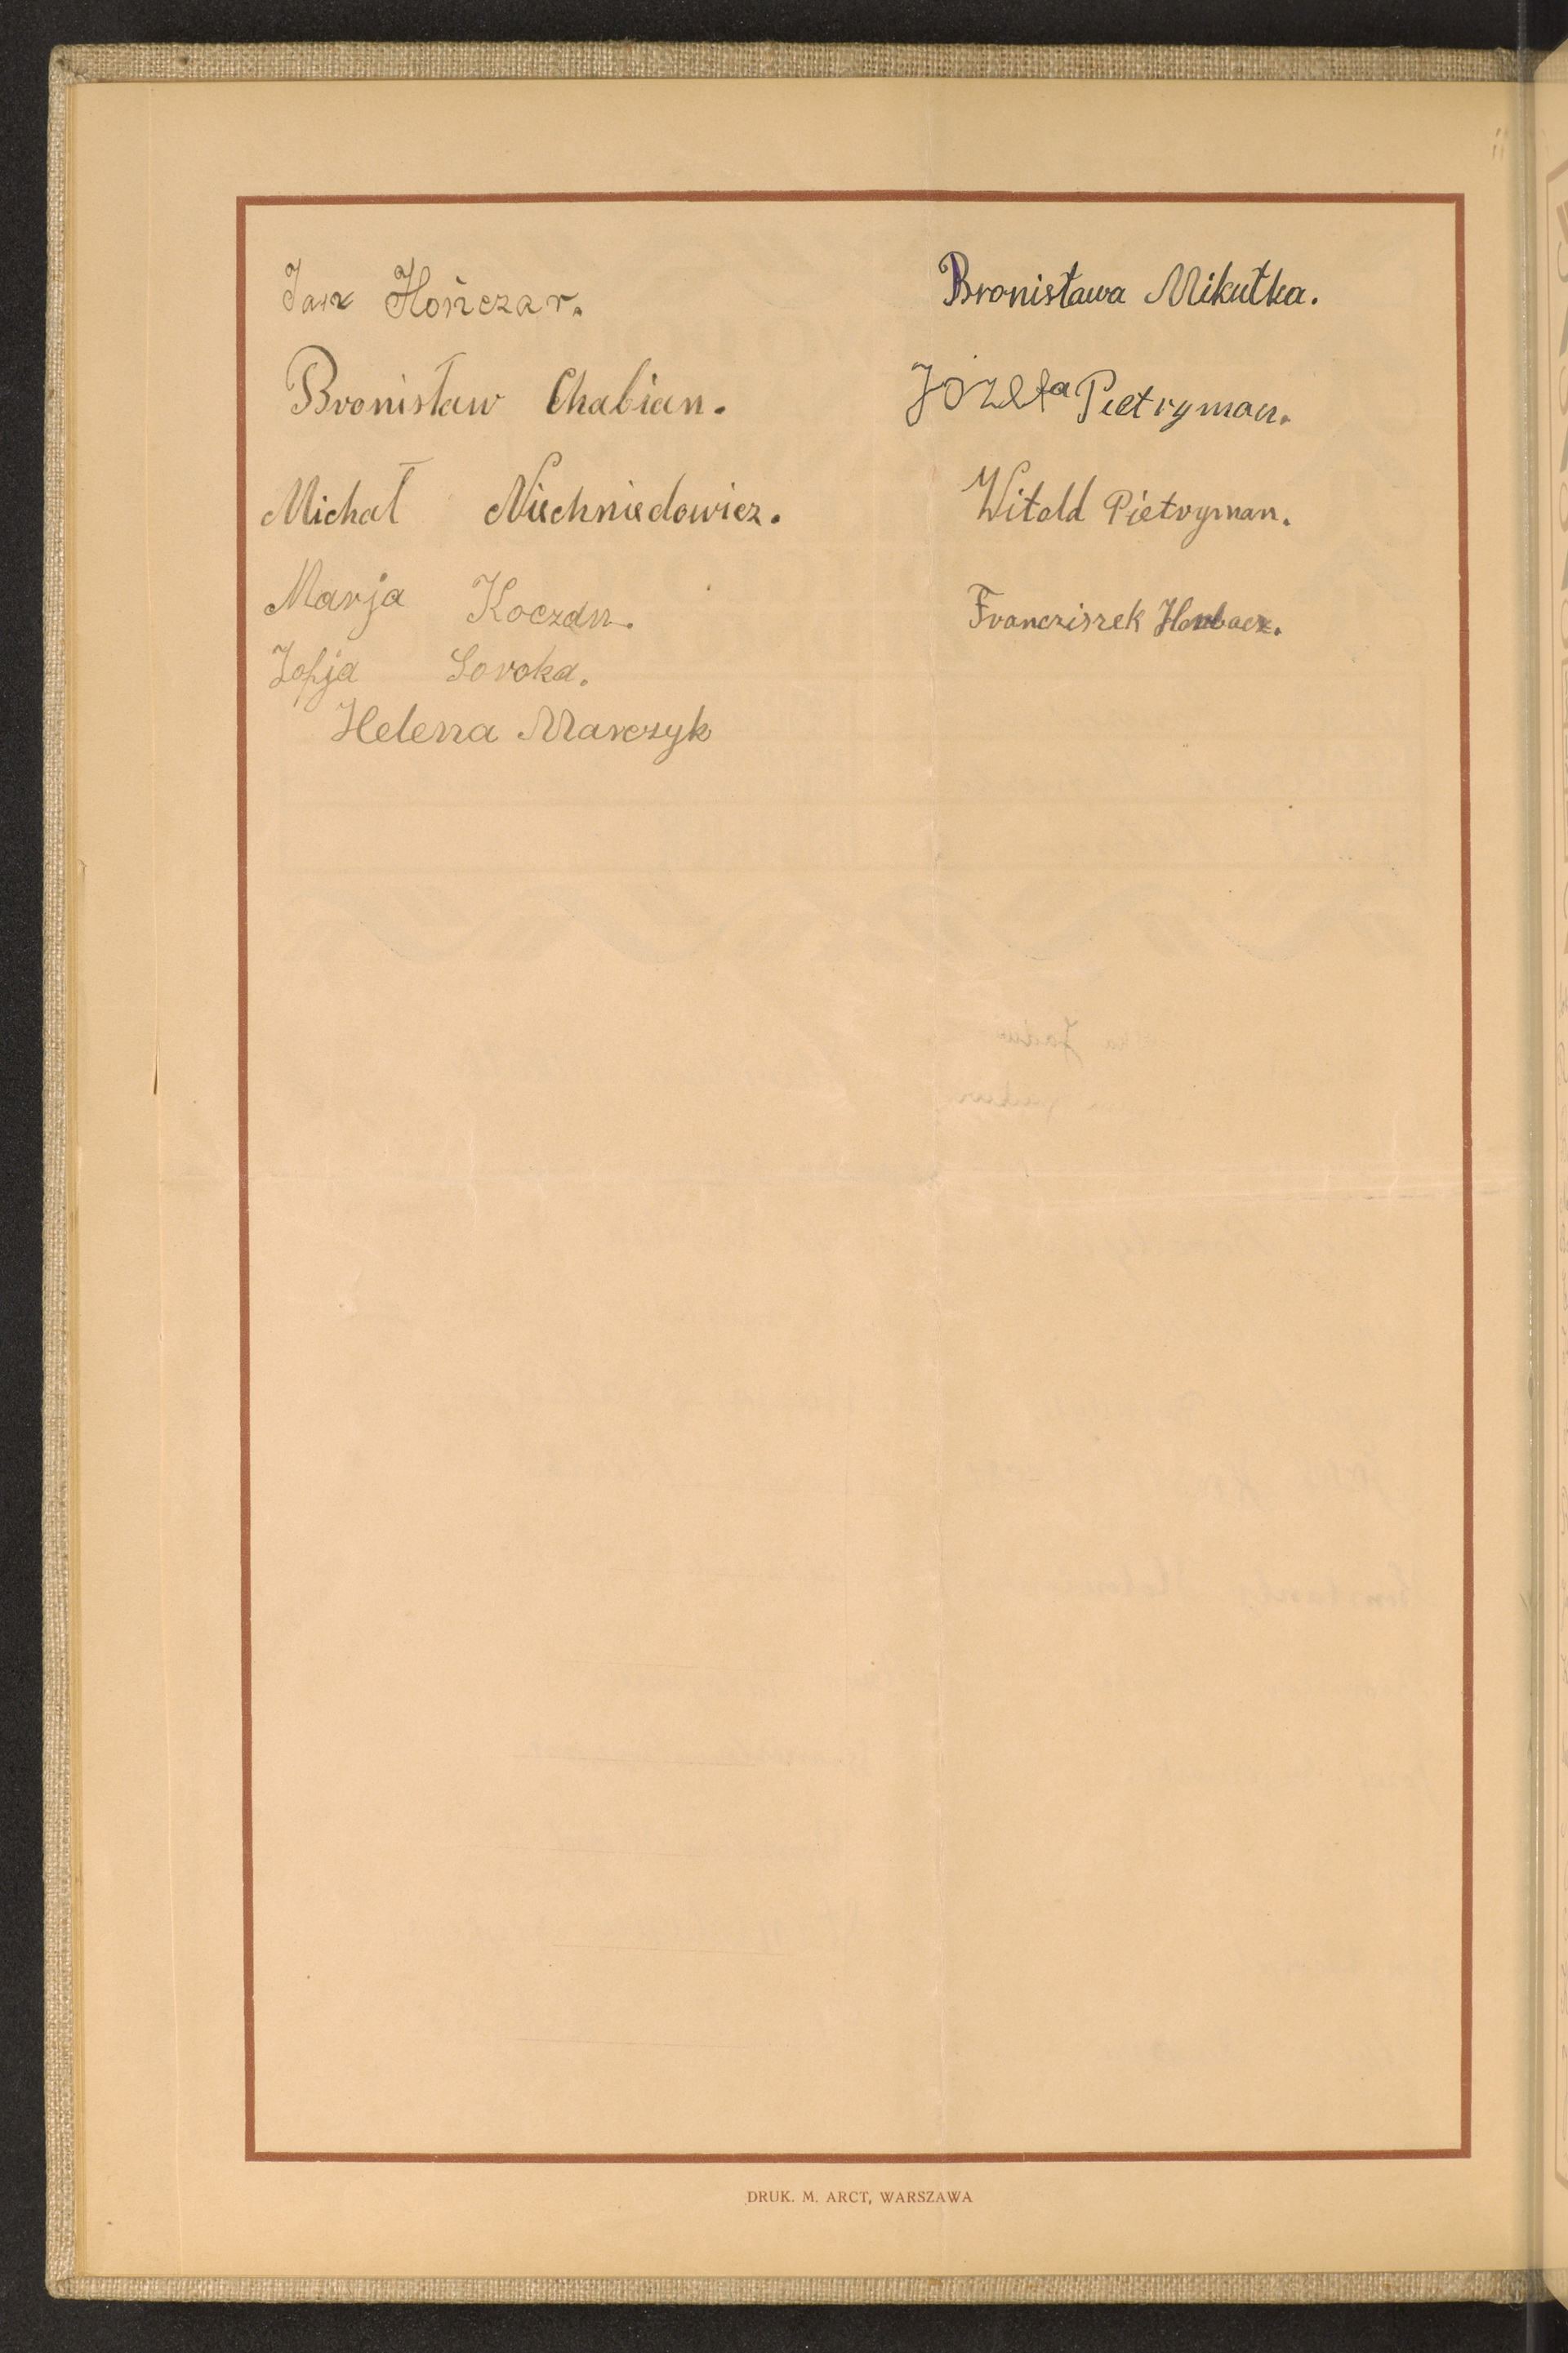 Jan Hończar.
Bronisław Chabian.
Michał Niechniedowicz.
Marja Koczan.
Zofja Soroka.
Helena Marczyk
Bronisława Mikutka.
Józefa Pietryman.
Witold Pietryman.
Franciszek
DRUK. M. ARCT, WARSZAWA